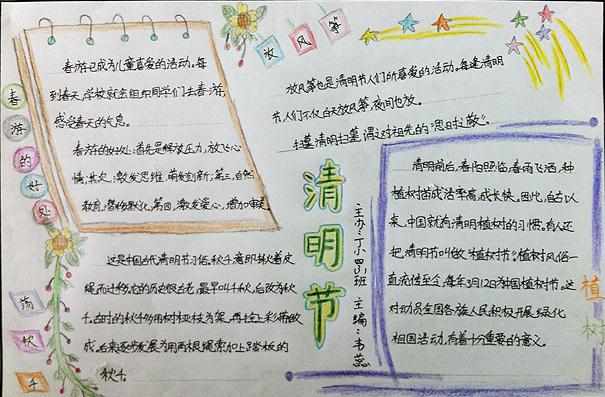 春游的好处
春游已成为儿童喜爱的活动。每
到春天,学校就会组织同学们去春游,
感受春天的气息。
春游的好处:首先是解放压力,放飞心
情,其次,激发思维,萌发创新;第三,自然
教育,
第四,激发爱心,增加审美。
放风筝
放风筝也是清明节人们所喜爱的活动。每逢清明
节,人们不仅白天放风筝,夜间也放。
扫墓清明扫墓,谓之对祖先的“思时之敬”。
清明节
主办:丁小四(3)班 主编:韦蕊
荡秋千
这是中国古代清明节习俗。秋千,意即揪着皮
绳而
迁移。它的历史很古老,最早叫千秋,后改为秋
千。古时的秋千多用树桠枝为架,再拴上彩带做
成。后来逐步发展为用两根绳索加上踏板的
秋千。
植树
清明前后,春阳照临,春雨飞洒,种
植树苗成活率高,成长快。因此,自古以
来,中国就有清明植树的习惯。有人还
把清明节叫做“植树节”。植树风俗一
直流传至今,每年3月12日为中国植树节。这
对动员全国各族人民积极开展绿化
祖国活动,有着十分重要的意义。